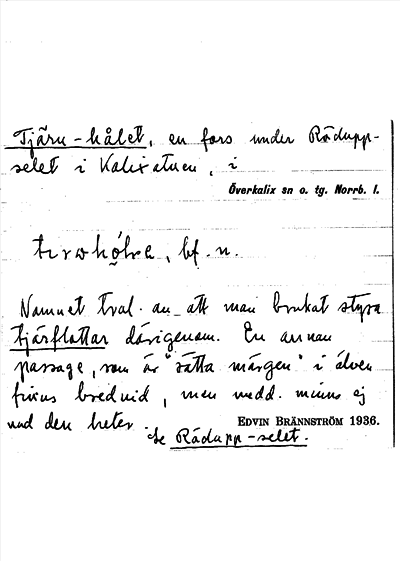 Tjäru-hålet, en fors under Rödupp-
selet i Kalixälven, i
Överkalix sn o. tg. Norrb. l.
bf. n.
Namnet tval. av att man brukat styra
tjärflottar därigenom. En annan
passage, som är "sätta märgen" i älven
finns bredvid, men medd. minns ej
vad den heter.
EDVIN BRÄNNSTRÖM 1936.
Se Rödupp-selet.